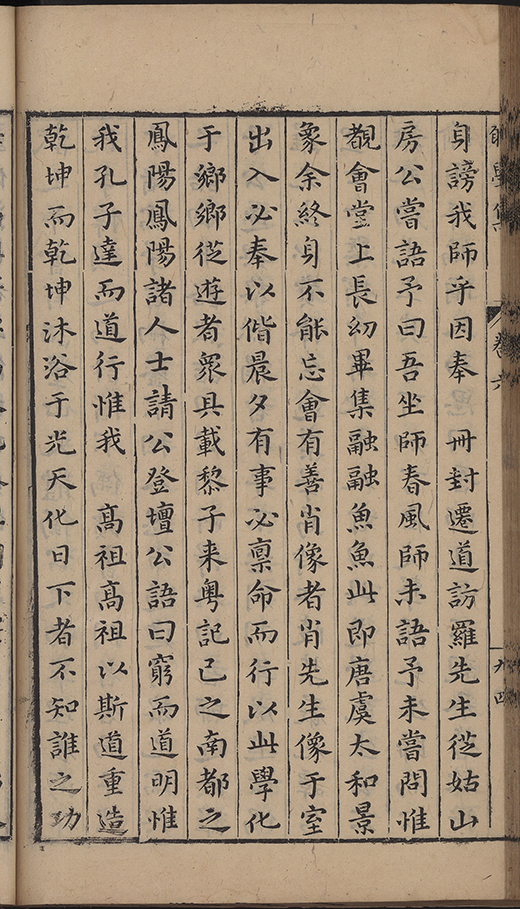 身謗我師乎因奉 冊封遷道訪羅先生從姑山
房公嘗語予曰吾坐師春風師未語予未嘗問惟
覩會堂上長幼畢集融融魚魚此即唐虞太和景
象余終身不能忘會有善肖像者肖先生像于室
出入必奉以偕晨夕有事必禀命而行以此學化
于鄉鄉從遊者衆具載黎子来粤記己之南都之
鳳陽鳳陽諸人士請公登壇公語曰窮而道明惟
我孔子達而道行惟我 高祖高祖以斯道重造
乾坤而乾坤沐浴于光天化日下者不知誰之功
卷六
九四